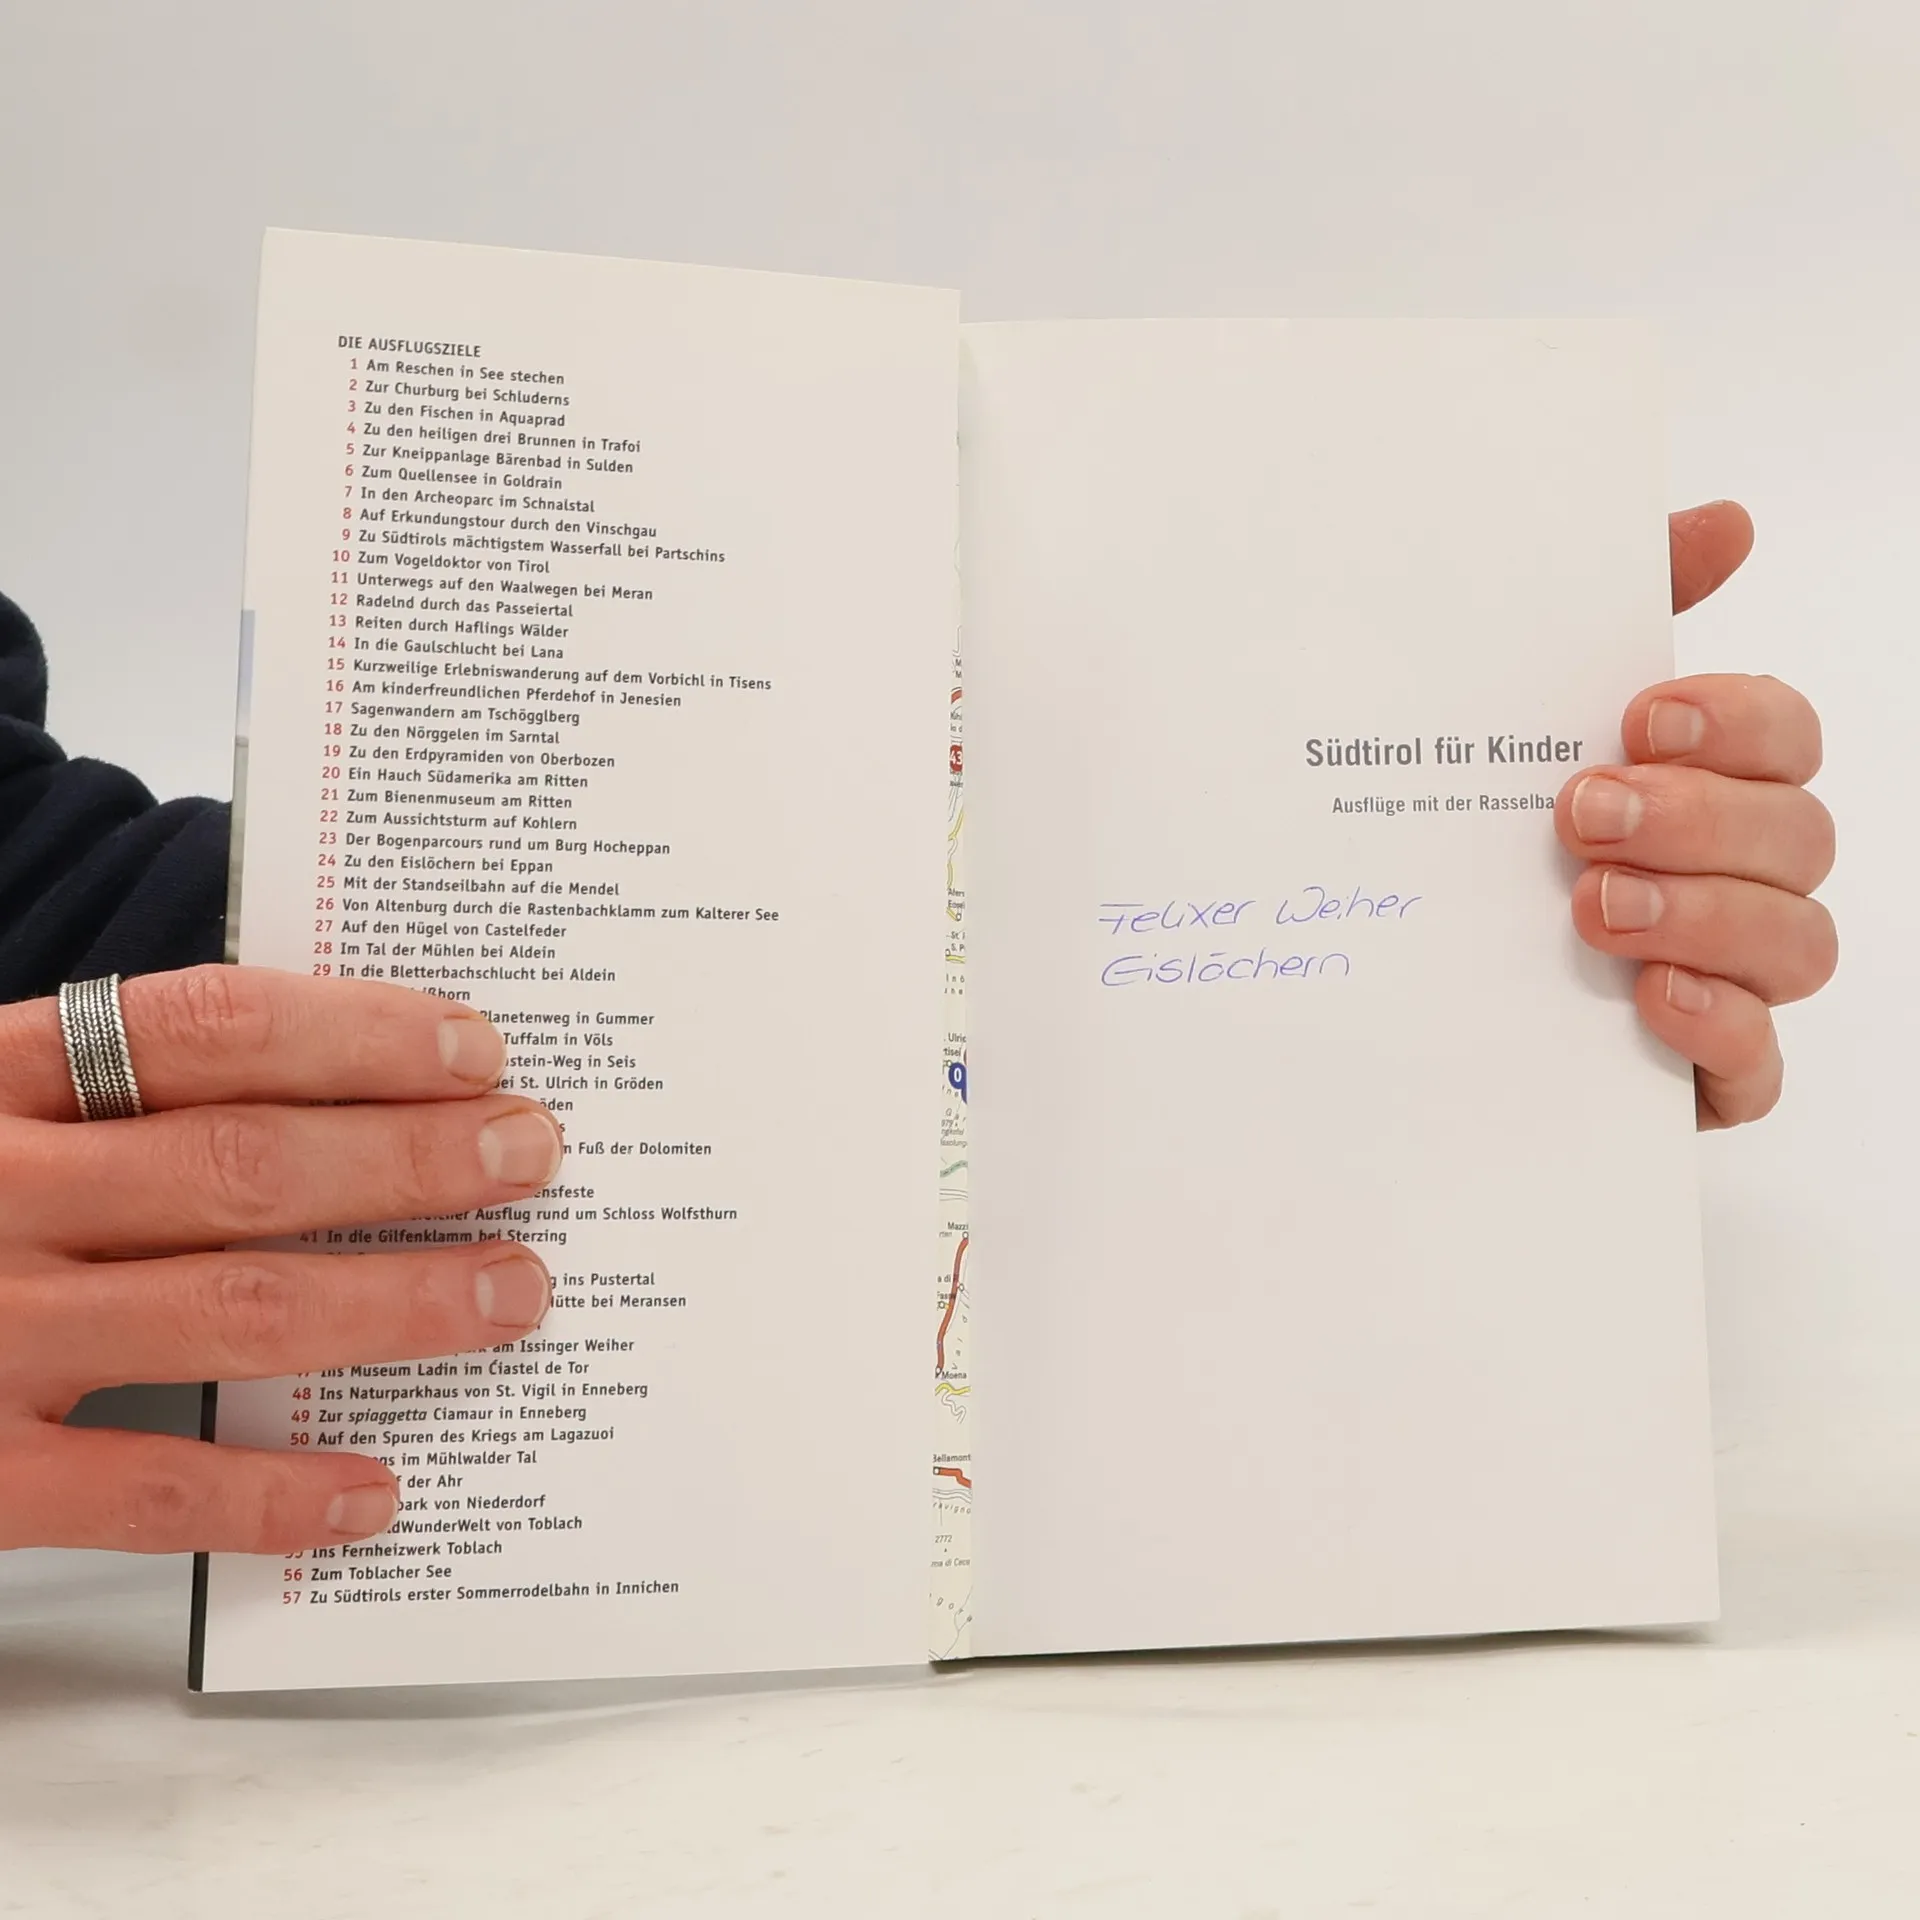 DIE AUSFLUGSZIELE
1 Am Reschen in See stechen
2 Zur Churburg bei Schluderns
3 Zu den Fischen in Aquaprad
4 Zu den heiligen drei Brunnen in Trafoi
5 Zur Kneippanlage Bärenbad in Sulden
6 Zum Quellensee in Goldrain
7 In den Archeoparc im Schnalstal
8 Auf Erkundungstour durch den Vinschgau
9 Zu Südtirols mächtigstem Wasserfall bei Partschins
10 Zum Vogeldoktor von Tirol
11 Unterwegs auf den Waalwegen bei Meran
12 Radelnd durch das Passeiertal
13 Reiten durch Haflings Wälder
14 In die Gaulschlucht bei Lana
15 Kurzweilige Erlebniswanderung auf dem Vorbichl in Tisens
16 Am kinderfreundlichen Pferdehof in Jenesien
17 Sagenwandern am Tschögglberg
18 Zu den Nörggelen im Sarntal
19 Zu den Erdpyramiden von Oberbozen
20 Ein Hauch Südamerika am Ritten
21 Zum Bienenmuseum am Ritten
22 Zum Aussichtsturm auf Kohlern
23 Der Bogenparcours rund um Burg Hocheppan
24 Zu den Eislöchern bei Eppan
25 Mit der Standseilbahn auf die Mendel
26 Von Altenburg durch die Rastenbachklamm zum Kalterer See
27 Auf den Hügel von Castelfeder
28 Im Tal der Mühlen bei Aldein
29 In die Bletterbachschlucht bei Aldein
ßhorn
Planetenweg in Gummer
Tuffalm in Völs
stein-Weg in Seis
ei St. Ulrich in Gröden
öden
n Fuß der Dolomiten
ensfeste
Ausflug rund um Schloss Wolfsthurn
41 In die Gilfenklamm bei Sterzing
g ins Pustertal
ütte bei Meransen
am Issinger Weiher
Ins Museum Ladin im Ćiastel de Tor
48 Ins Naturparkhaus von St. Vigil in Enneberg
49 Zur spiaggetta Ciamaur in Enneberg
50 Auf den Spuren des Kriegs am Lagazuoi
gs im Mühlwalder Tal
f der Ahr
park von Niederdorf
dWunderWelt von Toblach
55 Ins Fernheizwerk Toblach
56 Zum Toblacher See
57 Zu Südtirols erster Sommerrodelbahn in Innichen
43
0
Moena
2772
Südtirol für Kinder
Ausflüge mit der Rasselba
Felixer Weiher
Eislöchern